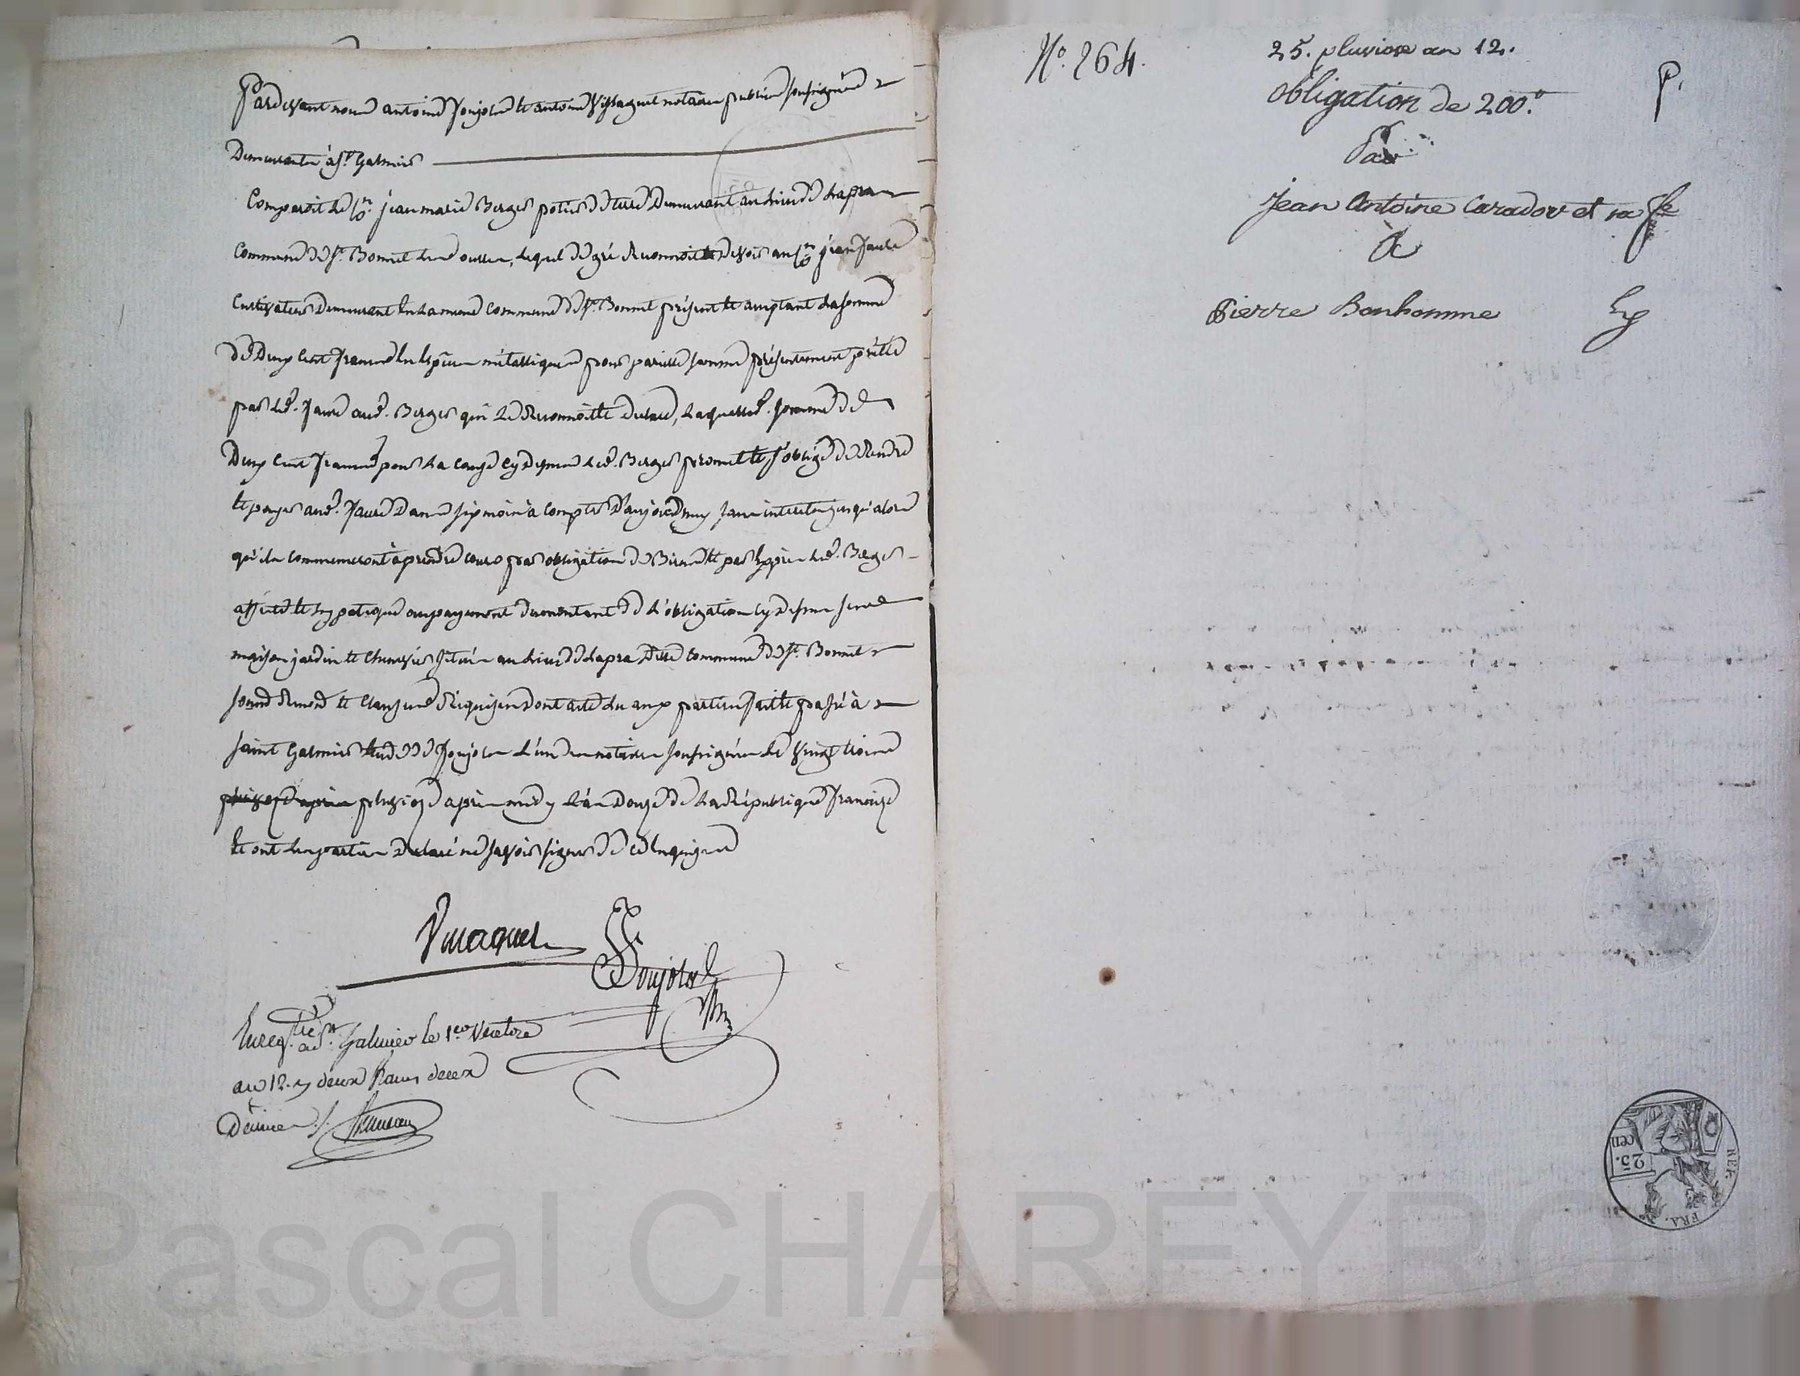 Pardevant nous antoine Ponjolat et antoine Vissaguet notaires publics soussignés
Demeurants à St. Galmier
Comparoit le Cn. jean marie Berger potier de terre Demeurant au lieu de Lapra
Commune de St. Bonnet Les oulles, lequel de gré Reconnoit devoir au Cn jean faure
Cultivateur Demeurant en La meme Commune de St. Bonnet présent et acceptant La somme
de Deux Cent francs En Espèces métalliques pour pareille somme présentement prêtée
par led. faure aud. Berger qui Le Reconnoit et declare, Laquelle d. somme de
Deux Cent francs pour La cause Cy Dessus led. Berger promet et s'oblige de Rendre
et payer aud. faure Dans six mois à Compter D'aujourd'huy sans interets jusqu'alors
qu'ils commenceront à prendre cours par obligation de Biens et par Exprès led. Berger
affecte et hypoteque au payement du montant de L'obligation Cy Dessus ses
maison jardin et situés au Lieu de Lapra Ditte Commune de St. Bonnet
sous et Clauses Réquises Dont acte Lu aux parties fait et passé à
saint Galmier Etude de Ponjolat L'un des notaires soussignés Le vingt trois
pluviose après midy L'an Douze de La République françoise
et ont Les parties Déclaré ne savoir signer de ce Enquises
Vissaguet
Ponjolat
Enregtré à St. Galmier le 1er Ventose
an 12. deux francs deux
Décimes
No. 264.
25. pluviose an 12.
P.
obligation de 200.
Par
jean Antoine Caradot et sa fe
à
Pierre Bonhomme
REP. FRA.
25.
cen
Pascal CHAREYRO